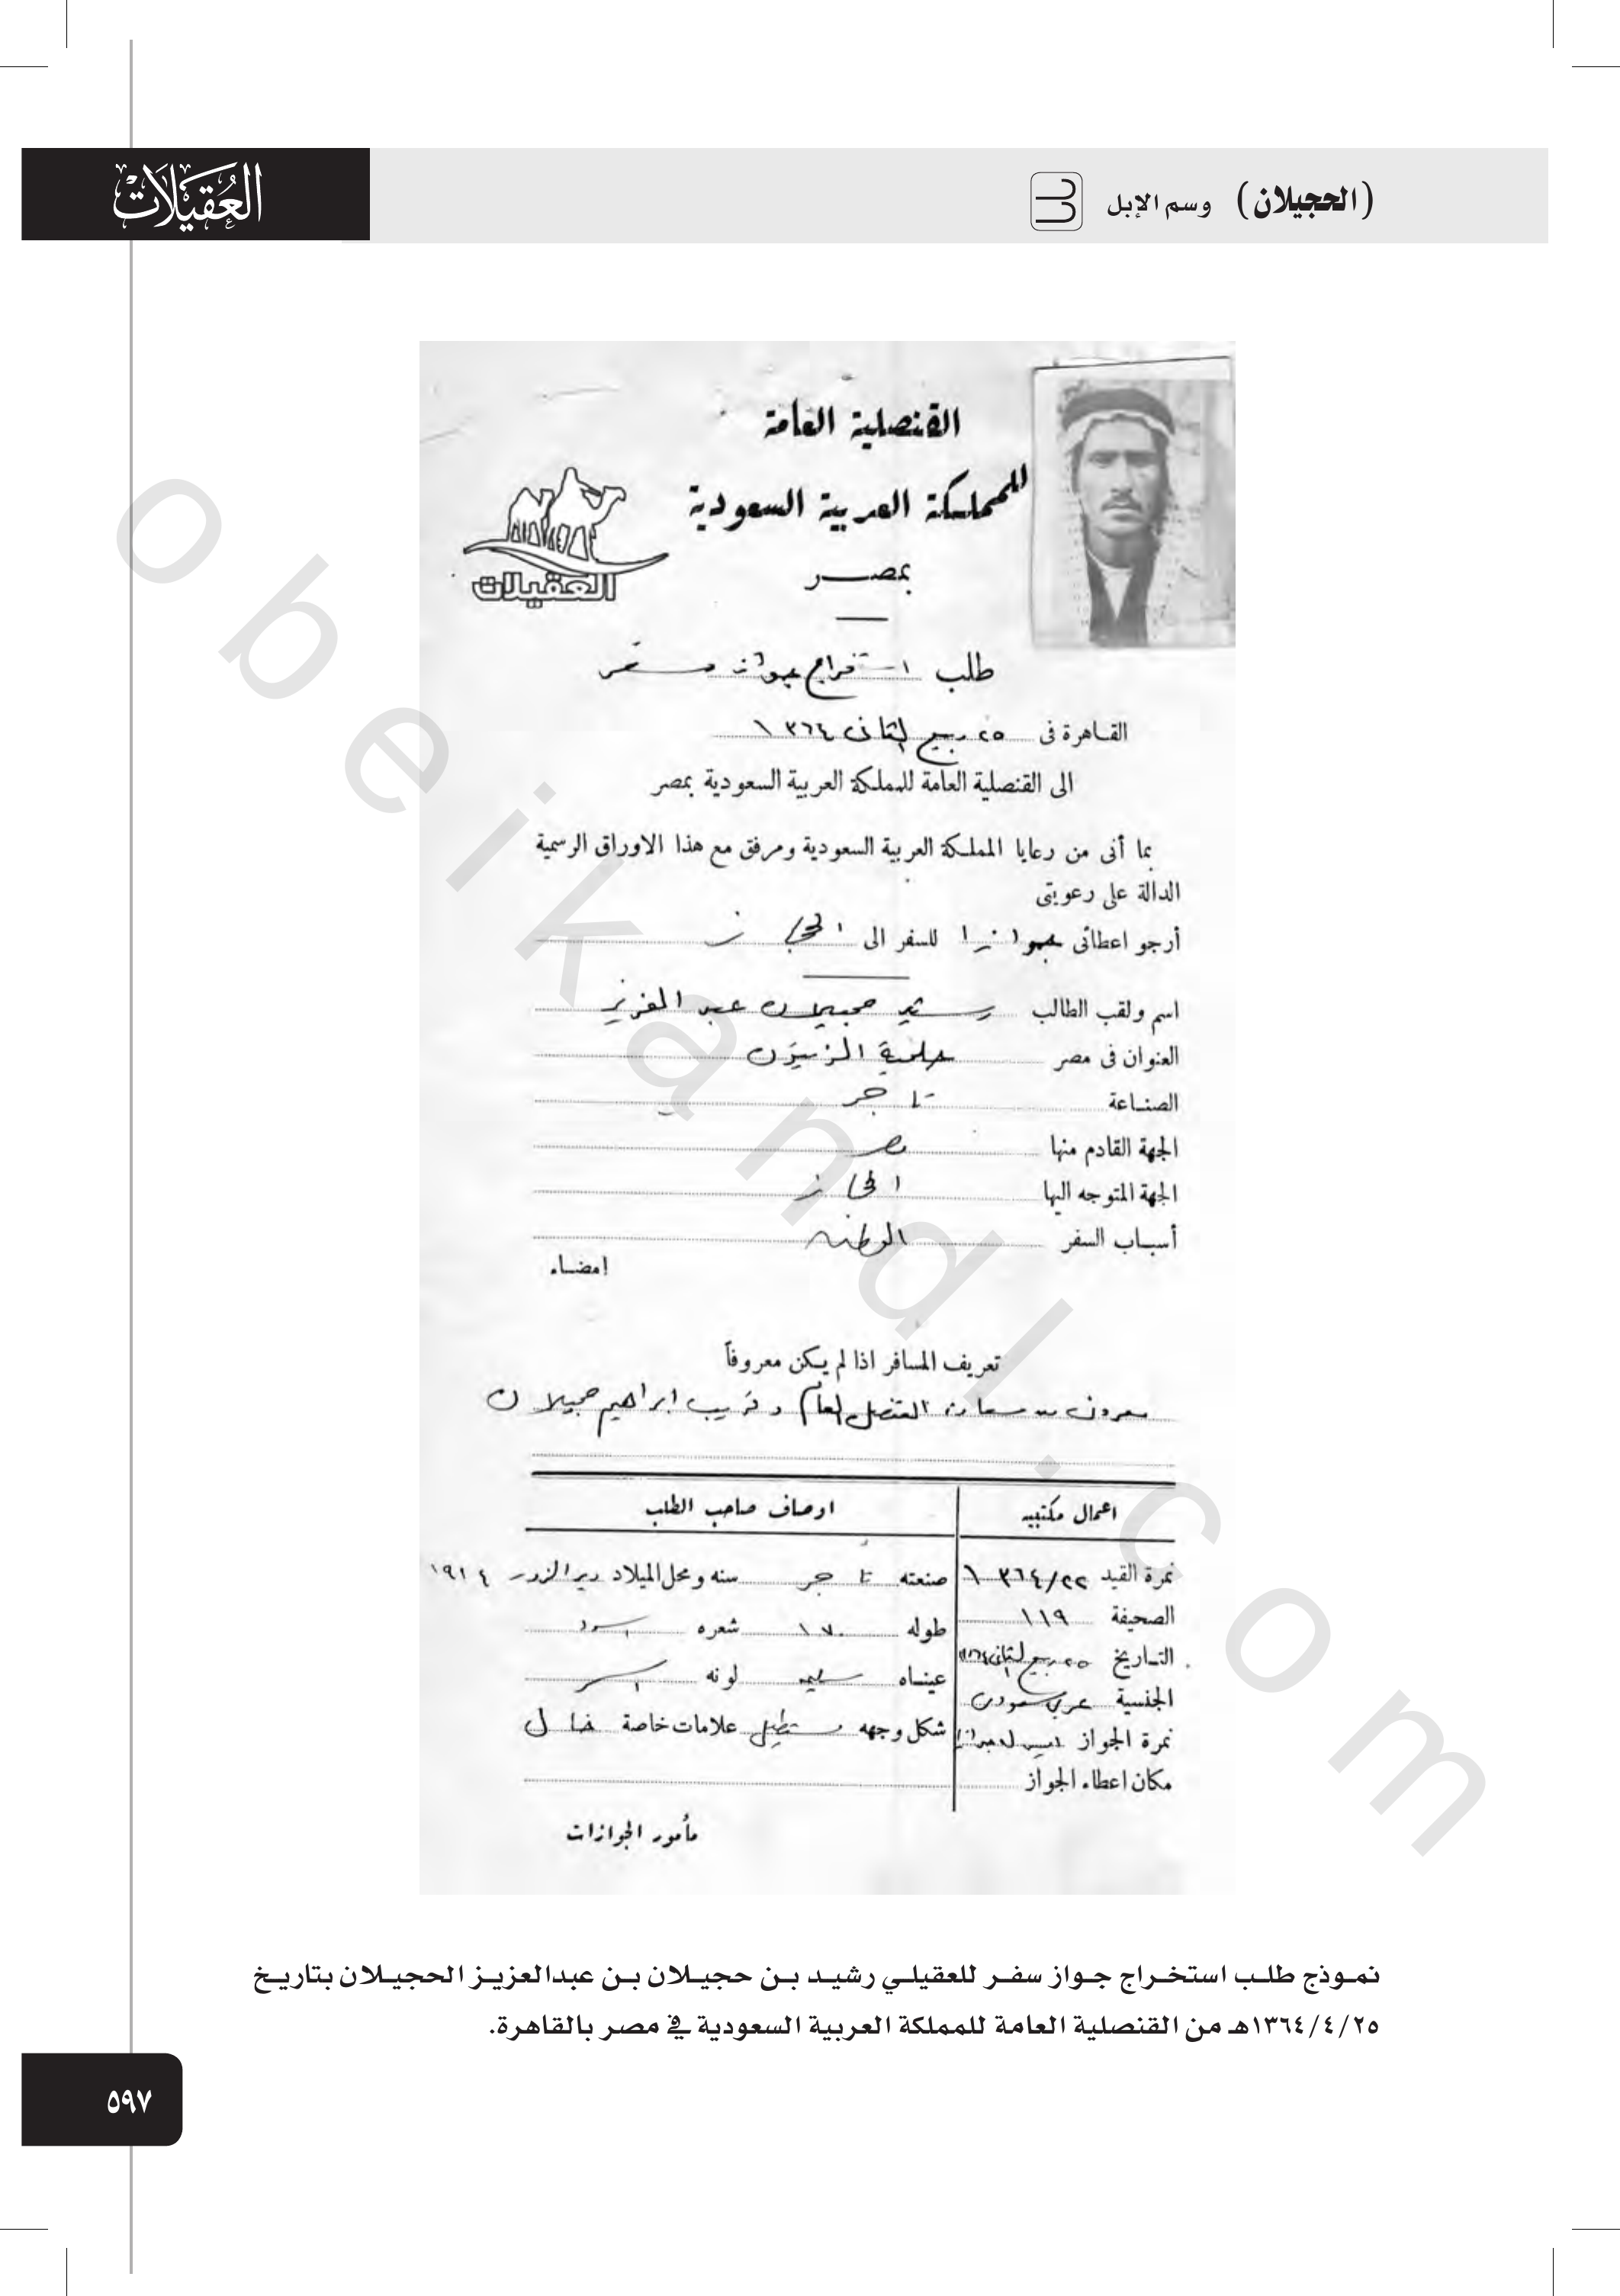 (الحجيلان) وسم الإبل
العُقَيْلَاتْ
القنصلية العامة
للمملكة العربية السعودية
بمصر
العقيلات
طلب استخراج جواز سفر
القاهرة فى ٢٥ ربيع الثانى ١٣٦٤
الى القنصلية العامة للمملكة العربية السعودية بمصر
بما أنى من رعايا المملكة العربية السعودية ومرفق مع هذا الاوراق الرسمية
الدالة على رعويتى
أرجو اعطائى جوازا للسفر الى الحجاز
اسم ولقب الطالب رشيد حجيلان عبد العزيز
العنوان فى مصر حلمية الزيتون
الصناعة تاجر
الجهة القادم منها مصر
الجهة المتوجه اليها الحجاز
أسباب السفر الوطنه
امضاء
تعريف المسافر اذا لم يكن معروفاً
معروف من سعادة القنصل العام وقريب ابراهيم حجيلان
اعمال مكتبيه
اوصاف صاحب الطلب
نمرة القيد ١٣٦٤/٢٢ صنعته تاجر سنه ومحل الميلاد دير الزور ١٩١٤
الصحيفة ١١٩ طوله ١٧٠ شعره اسود
التاريخ ٢٥ ربيع الثانى ١٣٦٤ عيناه سليمه لونه اسمر
الجنسية عربي سعودى شكل وجهه مستطيل علامات خاصة خال
نمرة الجواز ليس له جواز
مكان اعطاء الجواز
مأمور الجوازات
نموذج طلب استخراج جواز سفر للعقيلي رشيد بن حجيلان بن عبدالعزيز الحجيلان بتاريخ
١٣٦٤/٤/٢٥هـ من القنصلية العامة للمملكة العربية السعودية في مصر بالقاهرة.
٥٩٧
obeikandl.com